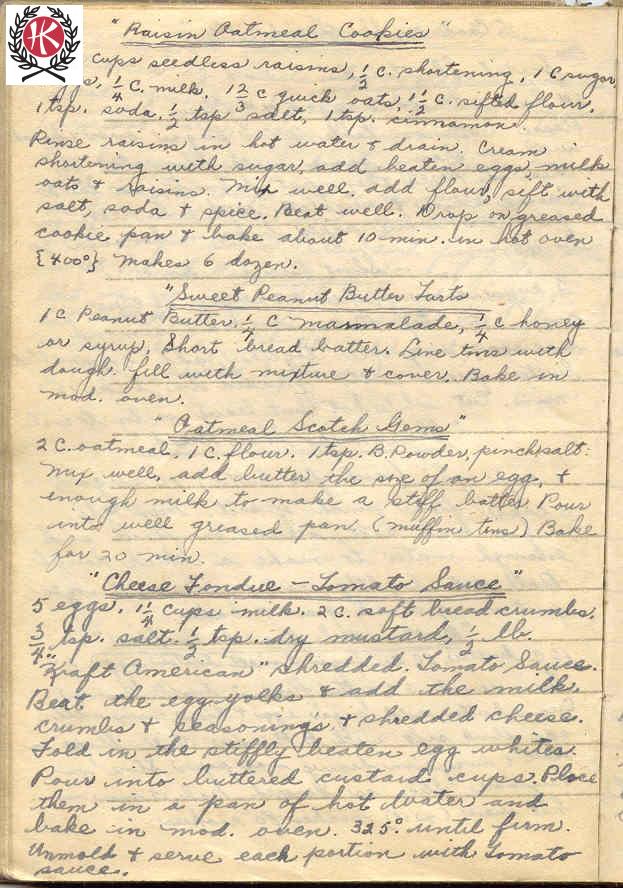 K
"Raisin Oatmeal Cookies"
cups seedless raisins, 1/2 c. shortening, 1 C sugar
1/4 c. milk, 1 2/3 c quick oats, 1 1/2 c. sifted flour,
1 tsp. soda. 1/2 tsp salt, 1 tsp. cinnamon.
Rinse raisins in hot water & drain. Cream
shortening with sugar, add beaten eggs, milk
oats & raisins. Mix well, add flour, sift with
salt, soda & spice. Beat well. Drop on greased
cookie pan & bake about 10 min. in hot oven
{400°} Makes 6 dozen.
"Sweet Peanut Butter Tarts
1 C Peanut Butter, 1/4 C marmalade, 1/4 c honey
or syrup, Short bread batter. Line tins with
dough. fill with mixture & cover. Bake in
mod. oven.
"Oatmeal Scotch Gems"
2 C. oatmeal, 1 C. flour. 1 tsp. B. Powder, pinch salt.
Mix well, add butter the size of an egg, &
enough milk to make a stiff batter Pour
into well greased pan. (muffin tins) Bake
for 20 min.
"Cheese Fondue - Tomato Sauce"
5 eggs, 1 1/4 cups milk. 2 C. soft bread crumbs.
3/4 tsp. salt. 1/2 tsp. dry mustard, 1/2 lb.
"Kraft American" shredded. Tomato Sauce.
Beat the egg yolks & add the milk,
crumbs & seasonings, & shredded cheese.
Fold in the stiffly beaten egg whites.
Pour into buttered custard cups. Place
them in a pan of hot water and
bake in mod. oven. 325° until firm.
Unmold & serve each portion with Tomato
sauce.